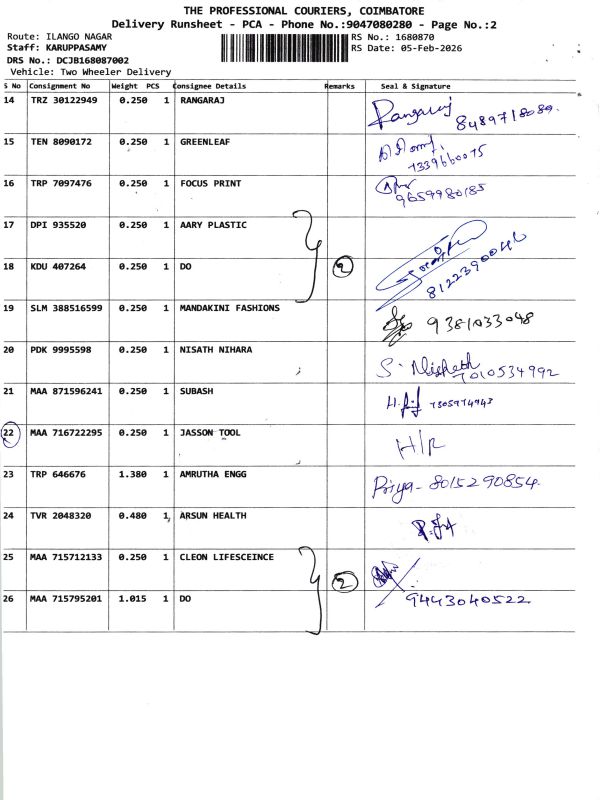 THE PROFESSIONAL COURIERS, COIMBATORE
Delivery Runsheet - PCA - Phone No.:9047080280 - Page No.:2
Route: ILANGO NAGAR RS No.: 1680870
Staff: KARUPPASAMY RS Date: 05-Feb-2026
DRS No.: DCJB168087002
Vehicle: Two Wheeler Delivery
S No Consignment No Weight PCS Consignee Details Remarks Seal & Signature
14 TRZ 30122949 0.250 1 RANGARAJ Rangaraj 8489718089.
15 TEN 8090172 0.250 1 GREENLEAF 7339660075
16 TRP 7097476 0.250 1 FOCUS PRINT 9659980185
17 DPI 935520 0.250 1 AARY PLASTIC
18 KDU 407264 0.250 1 DO 2 8122390046
19 SLM 388516599 0.250 1 MANDAKINI FASHIONS 9381033048
20 PDK 9995598 0.250 1 NISATH NIHARA S. Nisheth 7010534992
21 MAA 871596241 0.250 1 SUBASH 7305974943
22 MAA 716722295 0.250 1 JASSON TOOL H/R
23 TRP 646676 1.380 1 AMRUTHA ENGG Priya- 8015290854.
24 TVR 2048320 0.480 1 ARSUN HEALTH
25 MAA 715712133 0.250 1 CLEON LIFESCEINCE 2
26 MAA 715795201 1.015 1 DO 9443040522